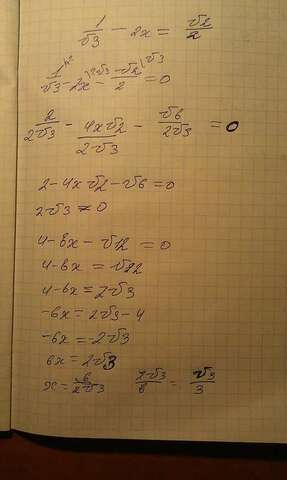 1/√3 - 2x = √2/2
1/√3 - 2x - √2/2 = 0
2/2√3 - 4x√2/2√3 - √6/2√3 = 0
2-4x√2-√6=0
2√3 ≠ 0
4-8x-√12=0
4-6x=√12
4-6x=2√3
-6x=2√3-4
-6x=-2√3
6x=2√3
x=6/2√3 2√3/6 = √3/3